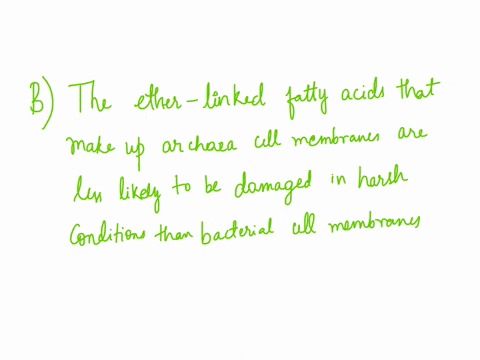 B) The ether-linked fatty acids that
make up archaea cell membranes are
less likely to be damaged in harsh
Conditions than bacterial cell membranes